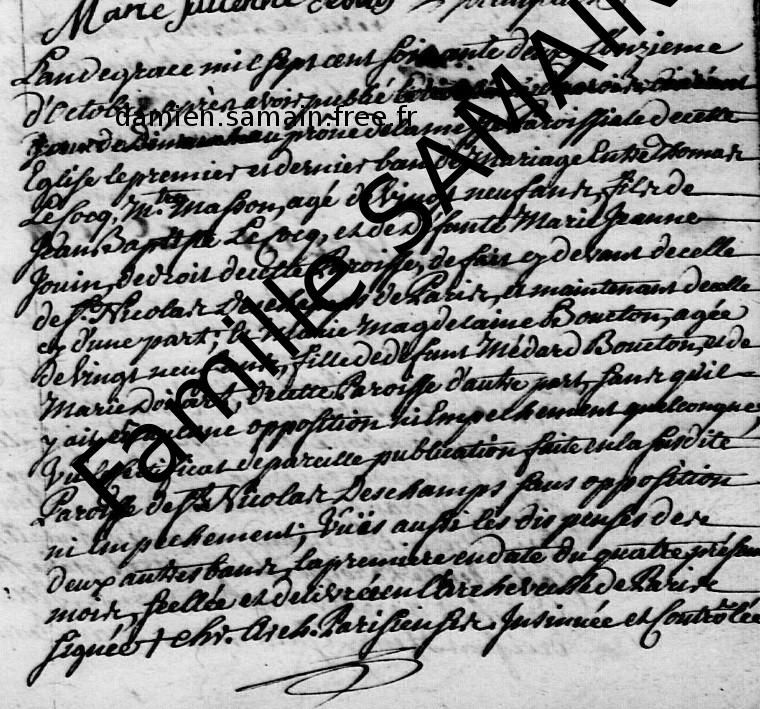 Marie Julienne
L'an de grace mil sept cent soixante deux, l'onzieme
d'Octobre, après avoir publié
damien.samain.free.fr
au prone de la messe Paroissiale de cette
Eglise le premier et dernier ban de Mariage Entre Thomas
Le Cocq, Mtre Masson, agé de vingt neuf ans, fils de
Jean Baptiste Le Cocq, et de défunte Marie Jeanne
Jouin, de droit de cette Paroisse, de fait cy devant de celle
de St. Nicolas Deschamps de Paris, et maintenant de celle
cy d'une part; et Marie Magdelaine Boucton, agée
de vingt neuf ans, fille de defunt Médard Boucton, et de
Marie, de cette Paroisse d'autre part, sans qu'il
y ait eu aucune opposition ni Empechement quelconque;
Vu le certificat de pareille publication faite en la susdite
Paroisse de St. Nicolas Deschamps sans opposition
ni Empechement; Vües aussi les dispenses des
deux autres bans, la premiere en date du quatre présent
mois, scellée et delivrée en l'archeveché de Paris
signée † Chr. Arch. Parisiensis. Insinuée et Controlée
Famille SAMAIN